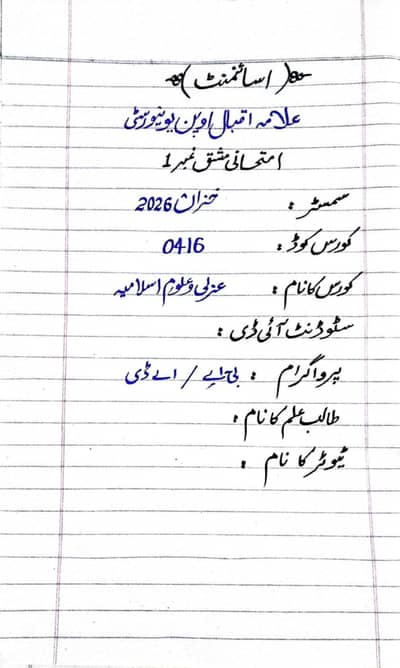 (اسائنمنٹ)
علامہ اقبال اوپن یونیورسٹی
امتحانی مشق نمبر 1
سمسٹر : خزاں 2026
کورس کوڈ : 0416
کورس کا نام : عربی و علوم اسلامیہ
سٹوڈنٹ آئی ڈی :
پروگرام : بی اے / اے ڈی
طالب علم کا نام :
ٹیوٹر کا نام :